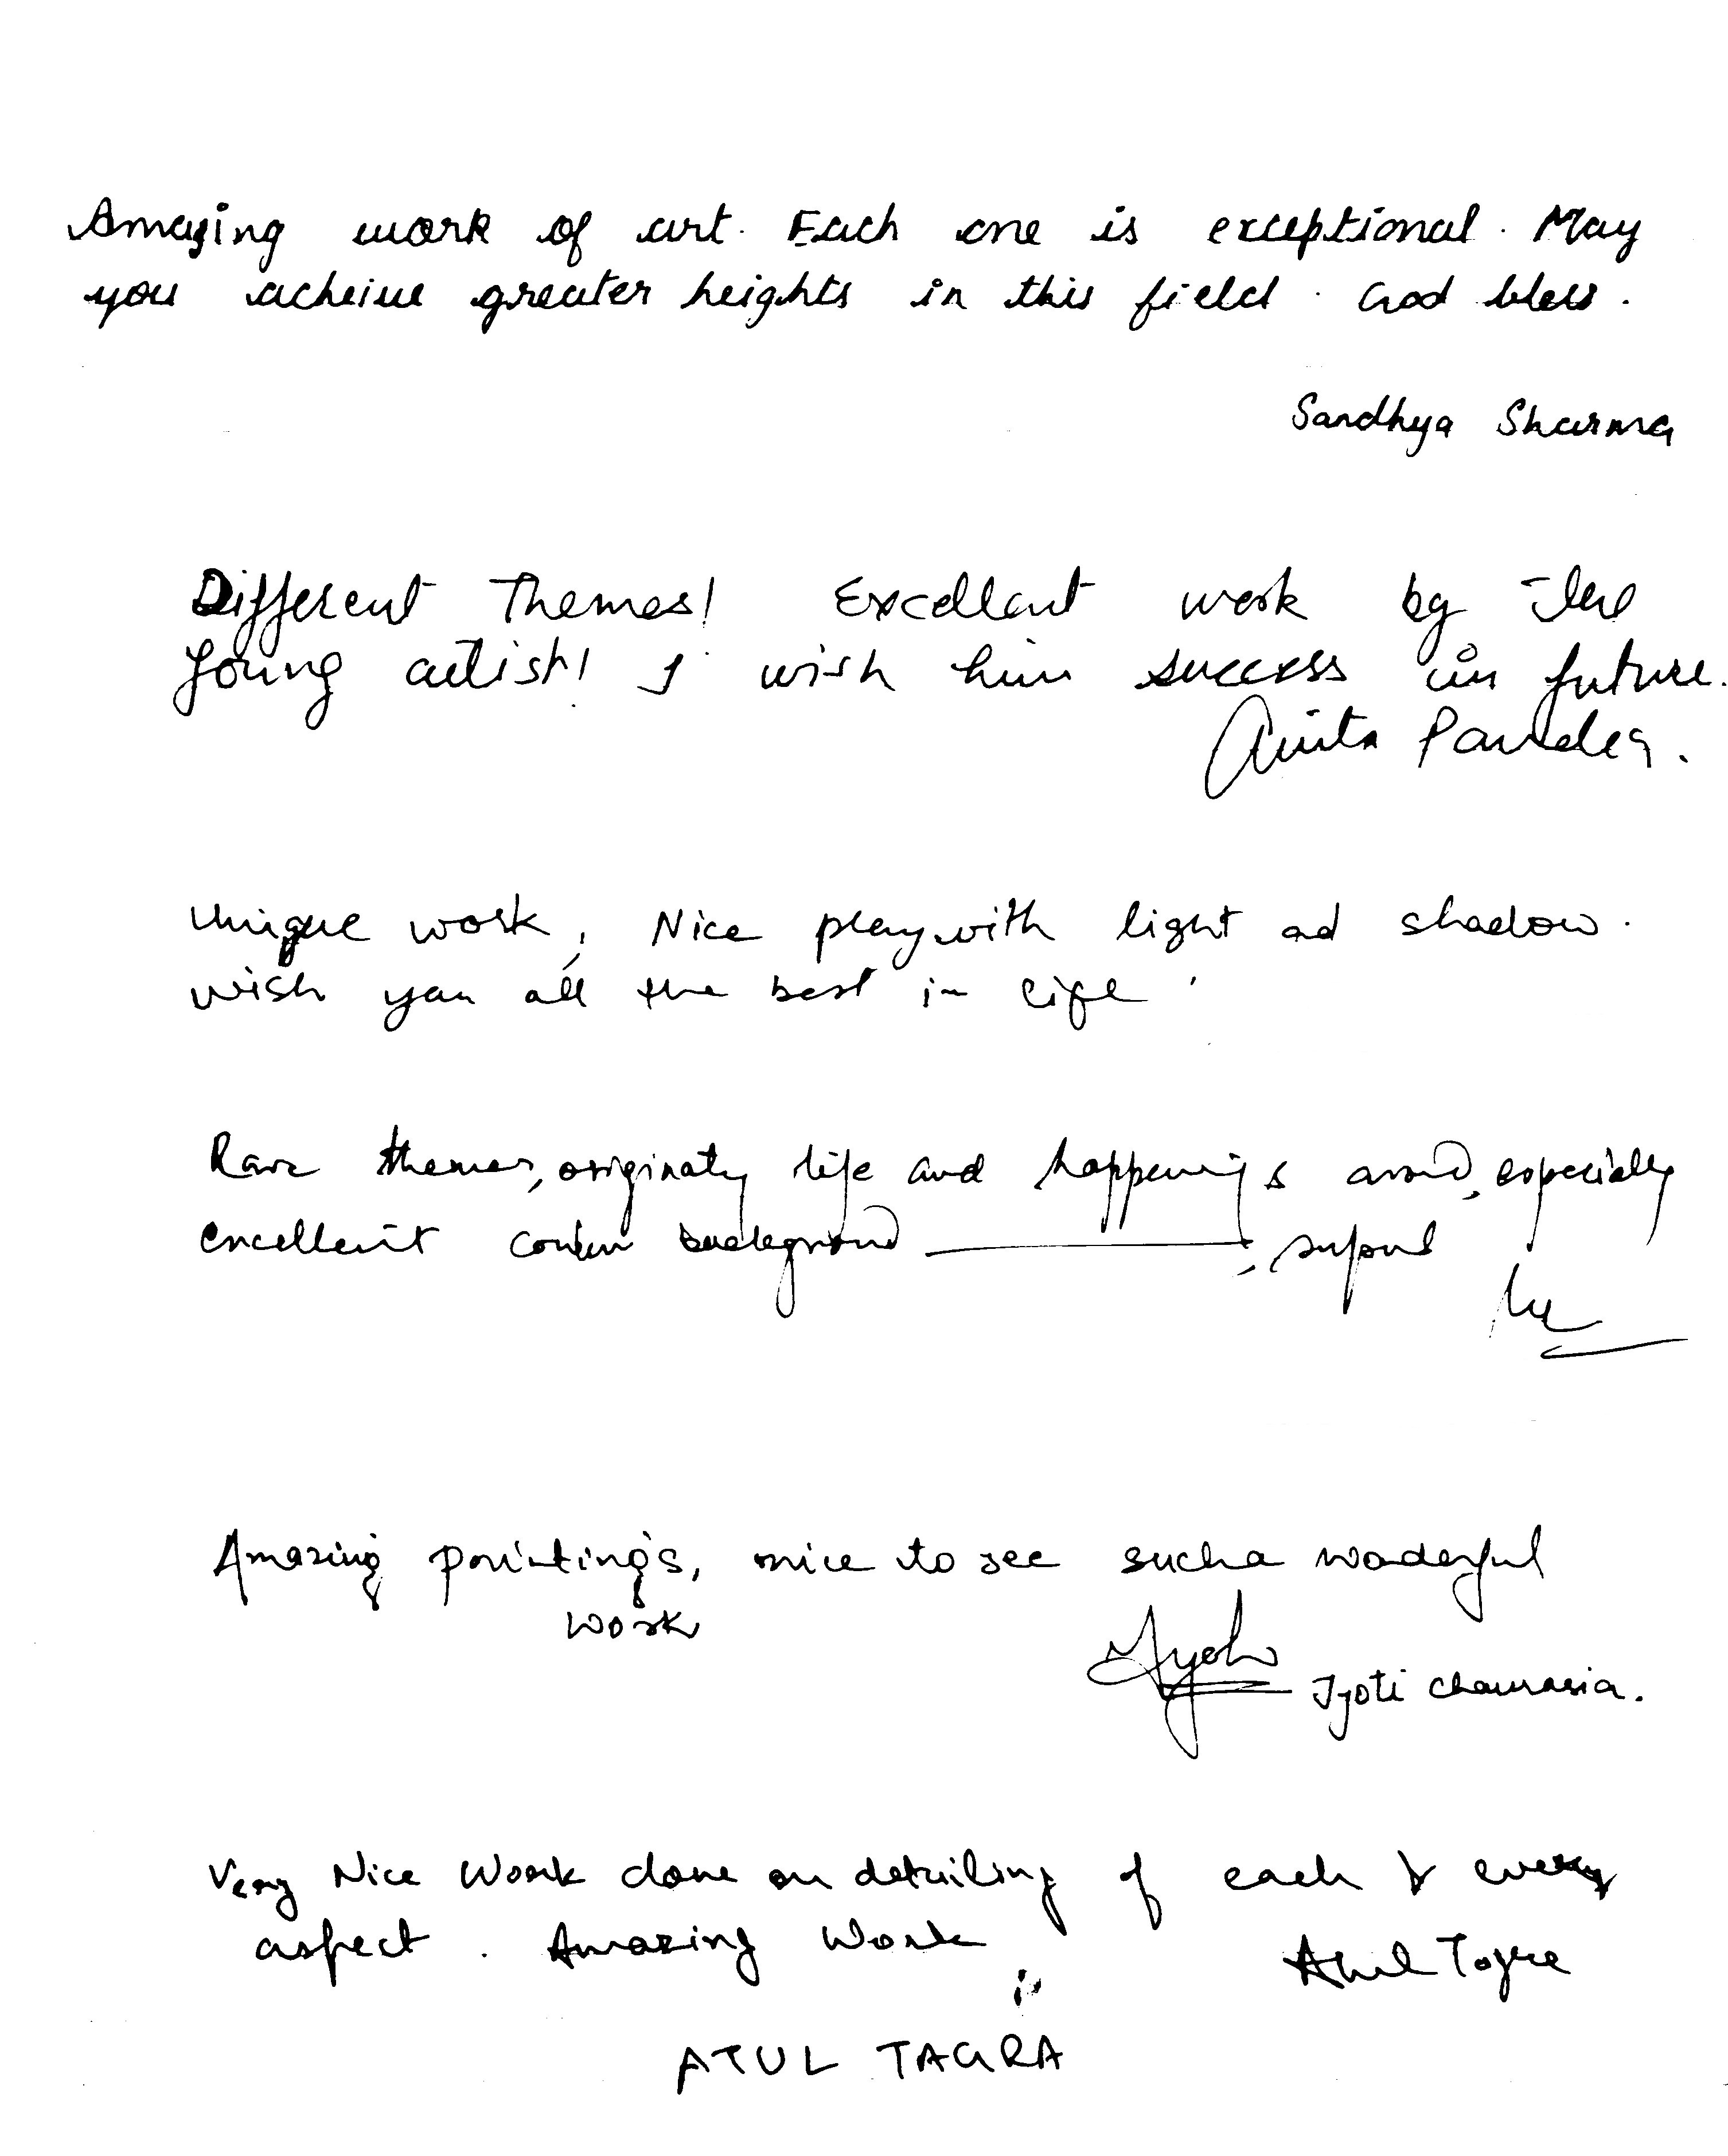 Amazing work of art. Each one is exceptional. May
you acheive greater heights in this field. God bless.
Sandhya Sharma
Different Themes! Excellent work by the
young artist! I wish him success in future.
Anita Pandey.
Unique work, Nice play with light ad shadow.
wish you all the best in life.
Rare themes, originaty life and happenings aroud, especially
excellent background
Amazing painting's, nice to see such a woderful
work
Jyoti Jyoti Chaurasia.
Very Nice Work done on detailing of each & every
aspect. Amazing Work
Atul Tagra
ATUL TAGRA